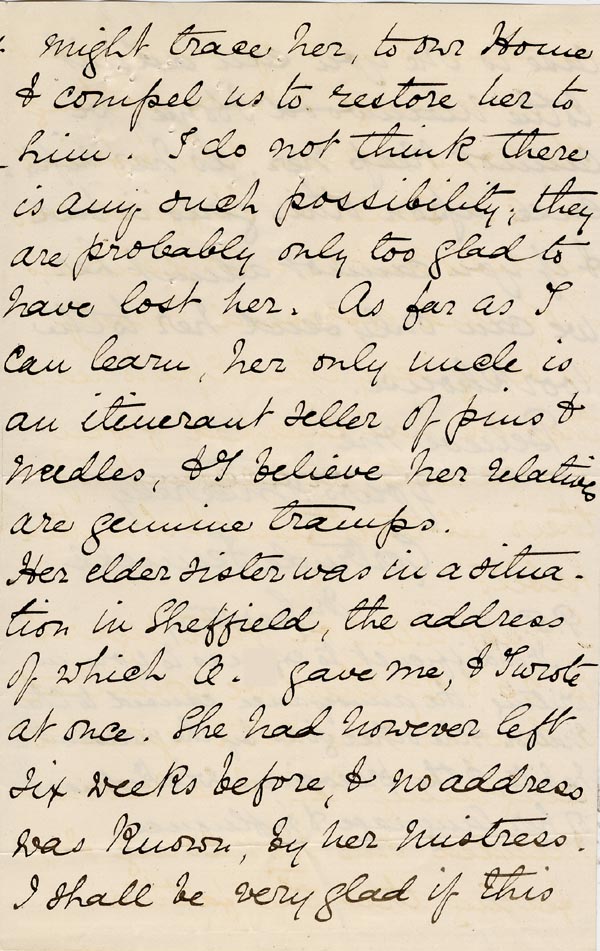 might trace her, to our Home
& compel us to restore her to
him. I do not think there
is any such possibility; they
are probably only too glad to
have lost her. As far as I
can learn, her only uncle is
an itinerant seller of pins &
needles, & I believe her relatives
are genuine tramps.
Her elder sister was in a situa-
tion in Sheffield, the address
of which A. gave me, & I wrote
at once. She had however left
six weeks before, & no address
was known, by her mistress.
I shall be very glad if this